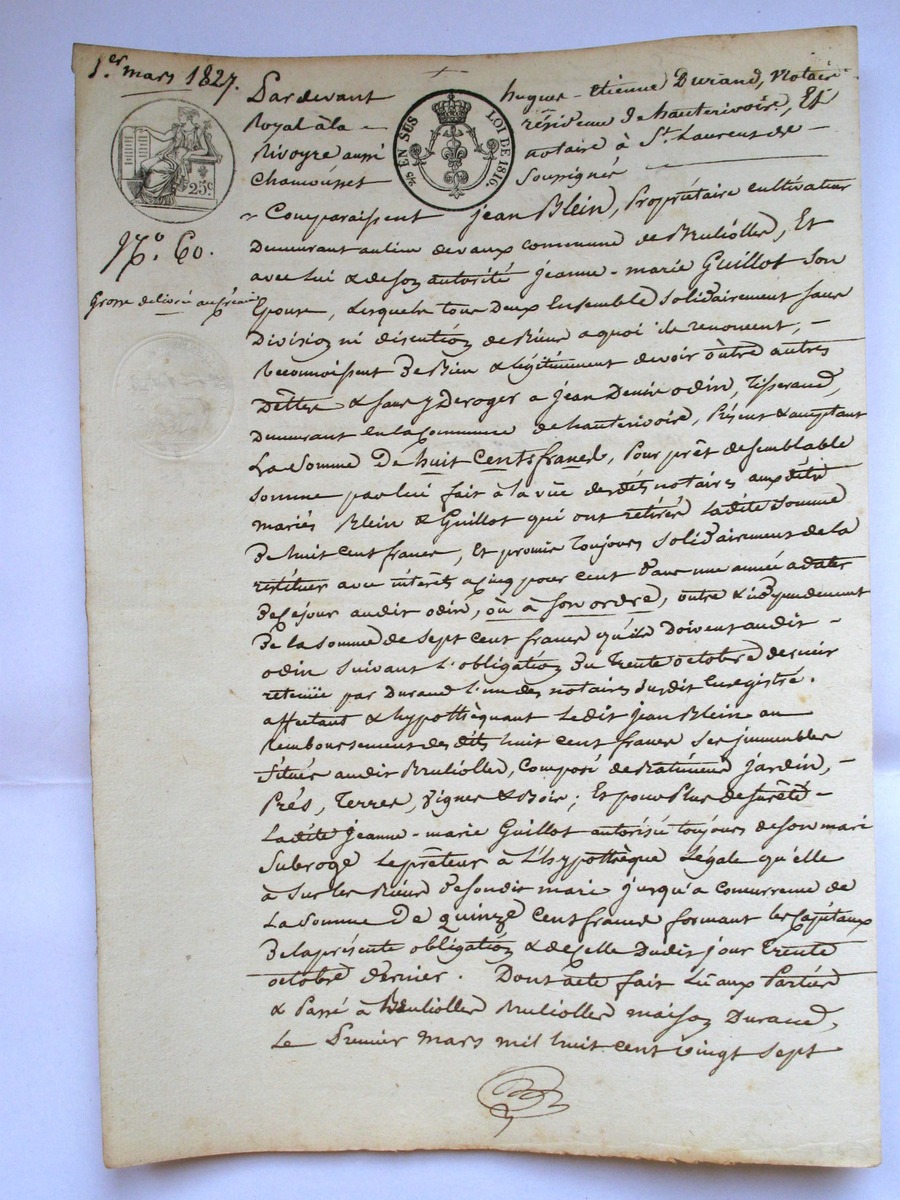 1.er mars 1827.
Pardevant hugues-Etienne Durand, Notaire
Royal à la résidence de hauterivoire, Et
Rivoyre aussi notaire à St. Laurent de
Chamousset Soussignés
EN SUS LOI DE 1816.
25c
N.o 60.
Grosse délivrée au créancier
Comparaissent Jean Blein, Propriétaire cultivateur
Demeurant au lieu devaux commune de Brullioller, Et
avec Lui & de son autorité Jeanne-marie Guillot Son
Epouse, Lesquels tous deux Ensemble Solidairement sans
Division ni discution de Biens a quoi ils renoncent,
Reconnoissent De Bien & légitimement devoir outre autres
Dettes & sans y Deroger a jean Denis odin, Tisserand,
Demeurant en la Commune de hauterivoire, Présent & acceptant
La Somme De huit Cents francs, Pour prêt de semblable
Somme par lui fait à la vüe des dits notaires aux dits
mariés Blein & Guillot qui ont retirés ladite Somme
De huit cent francs, Et promis Toujours solidairement de la
restituer avec intérêts a cinq pour cent dans une année a dater
De ce jour audit odin, où à son ordre, outre & indépendament
De la somme de Sept cent francs qu'ils Doivent audit
odin suivant l'obligation Du Trente octobre dernier
retenüe par Durand l'un des notaires susdit Enregistré.
affectant & hypothèquant Ledit jean Blein au
Remboursement des dits huit cent francs Ses immeubles
Situés audit Brullioller, Composé de Batiments jardin,
Prés, Terres, Vignes & Bois; Et pour Plus de sureté
Ladite Jeanne-marie Guillot autorisée toujours de son mari
Subroge Le prêteur à L'hypothèque Légale qu'elle
à Sur les Biens De son dit mari jusqu'a concurrence de
La Somme De quinze cent francs formant les Capitaux
De la présente obligation & de celle Dudit jour Trente
octobre dernier. Dont acte fait Lû aux Parties
& Passé à Brullioller maison Durand,
Le Premier mars mil huit cent vingt sept